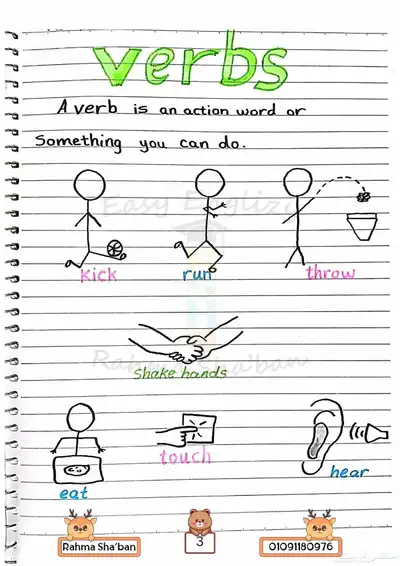 verbs
A verb is an action word or
Something you can do.
Easy English
kick run throw
Rahma Sha'ban
Shake hands
touch
eat
hear
Rahma Sha'ban 3 01091180976